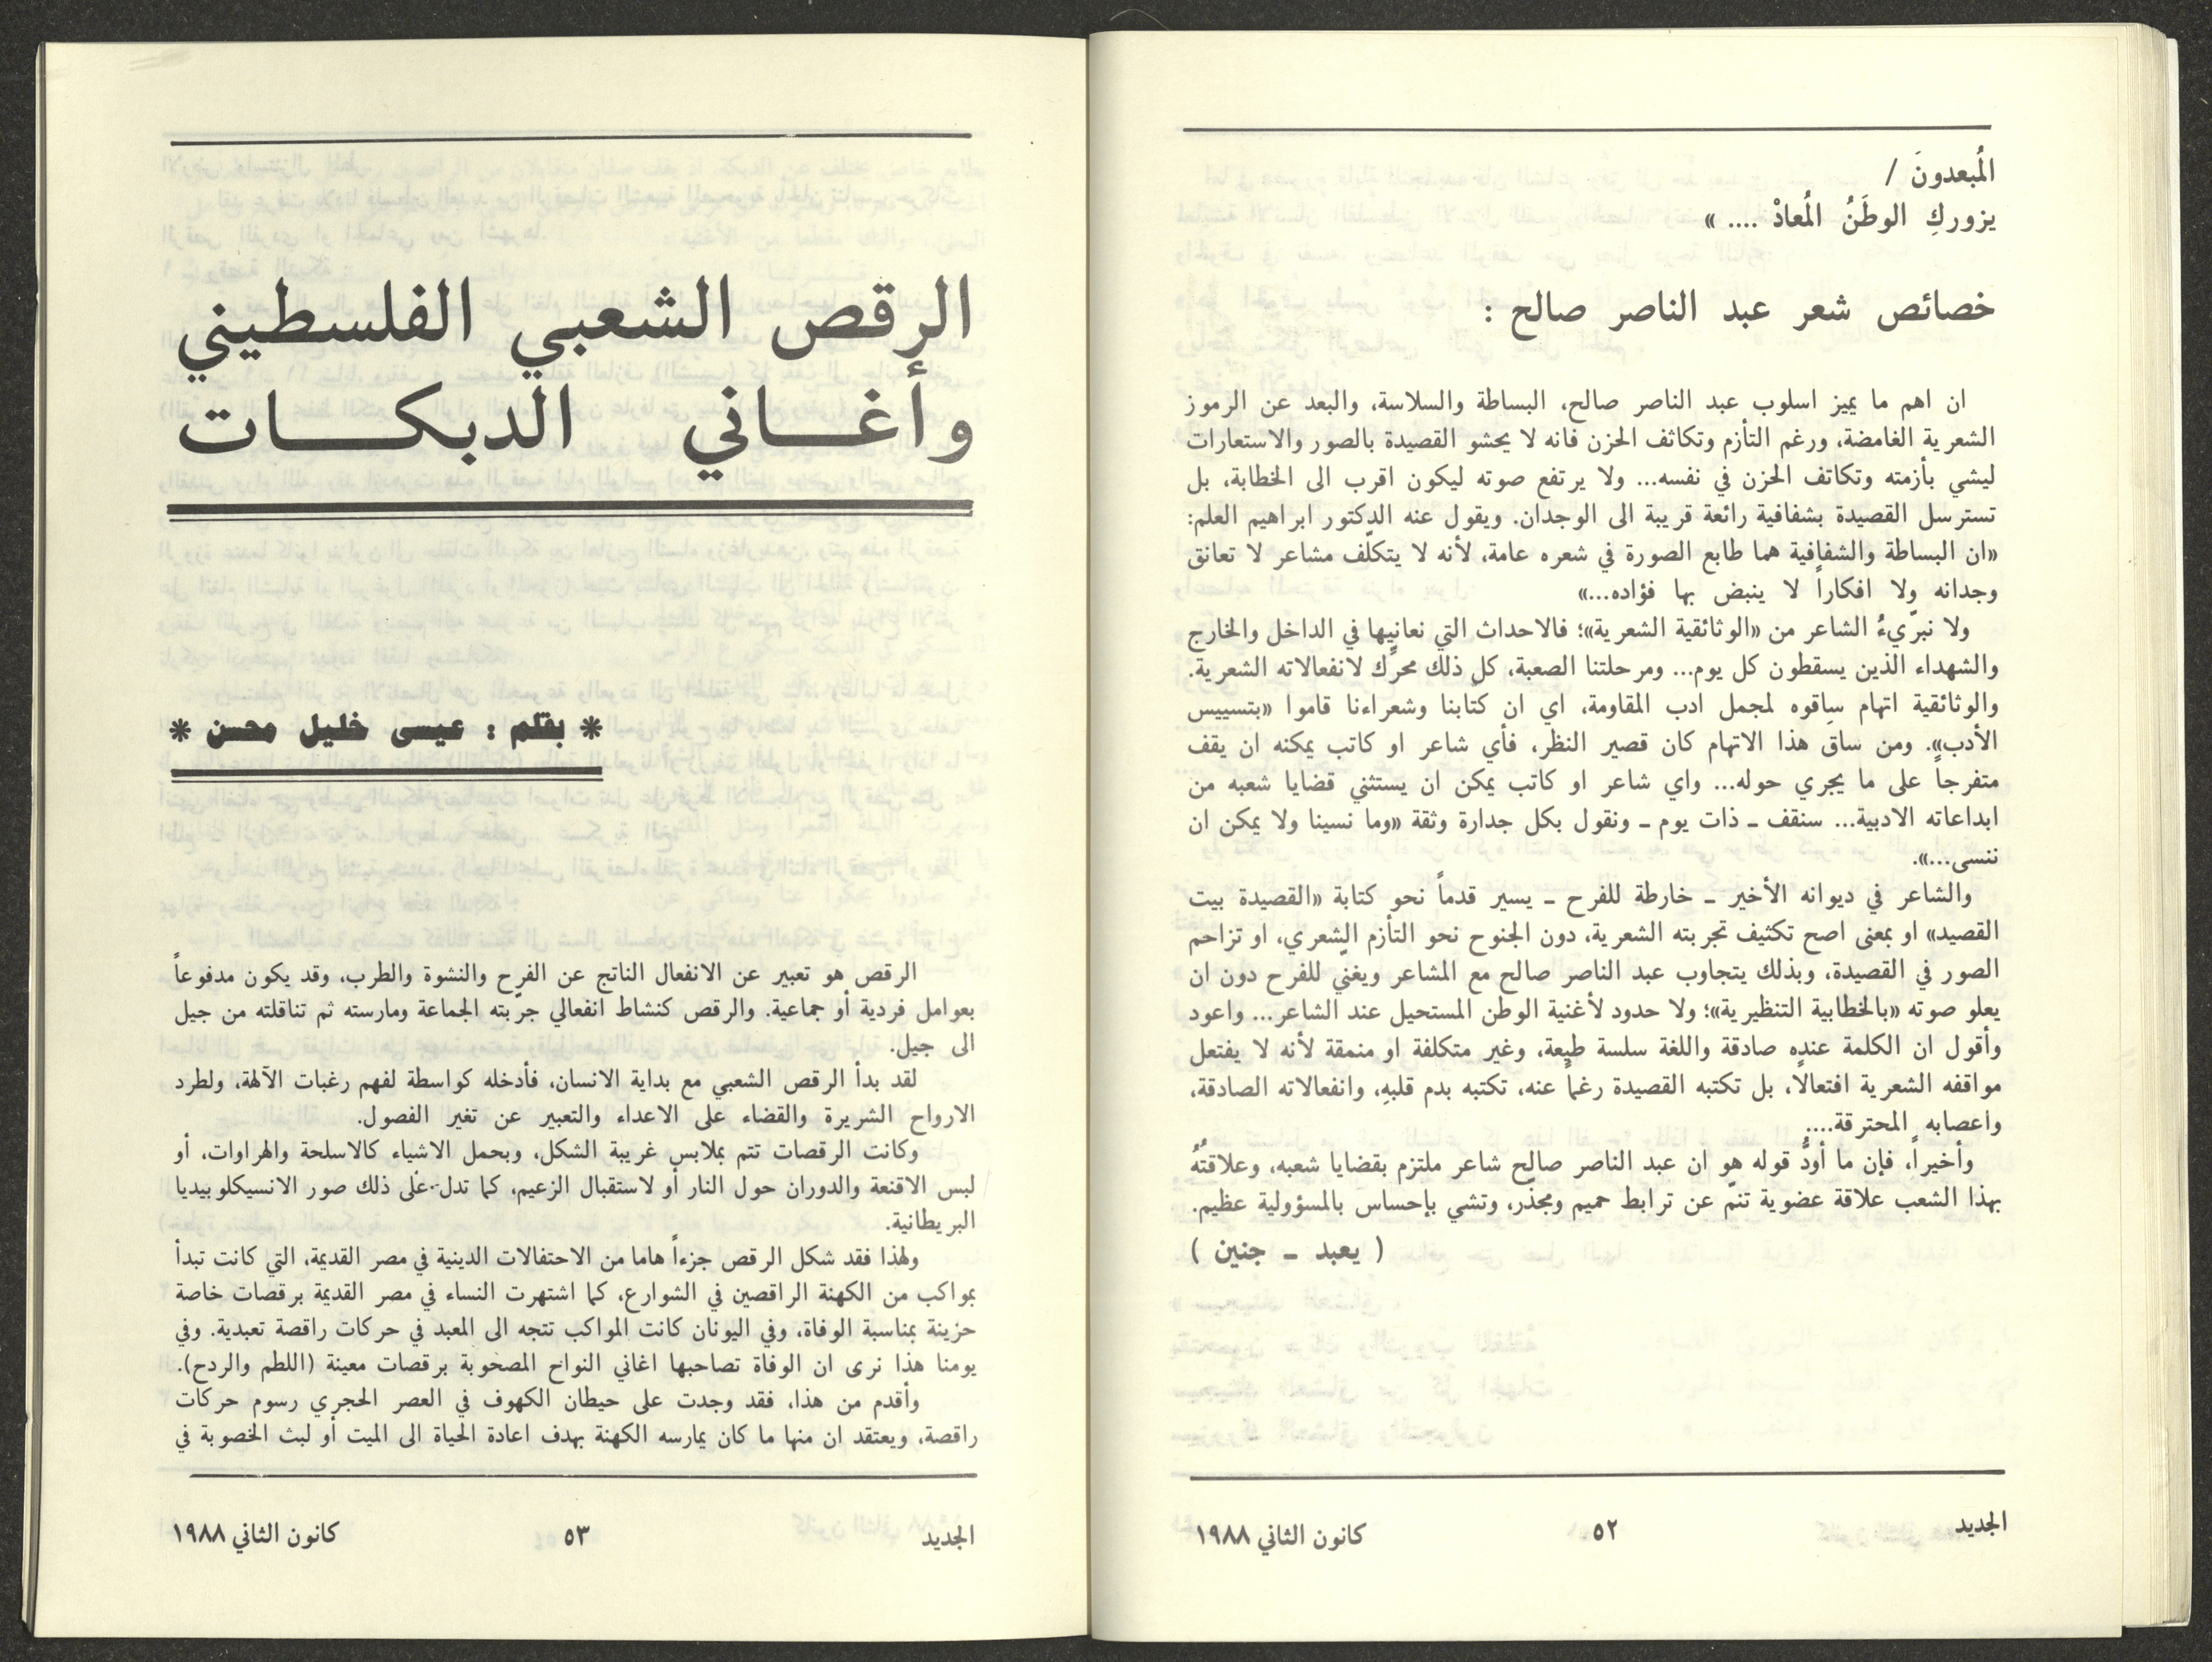 المُبعدونَ /
يزوركِ الوطَنُ المُعادْ .... »
خصائص شعر عبد الناصر صالح :
ان اهم ما يميز اسلوب عبد الناصر صالح، البساطة والسلاسة، والبعد عن الرموز
الشعرية الغامضة، ورغم التأزم وتكاثف الحزن فانه لا يحشو القصيدة بالصور والاستعارات
ليشي بأزمته وتكاثف الحزن في نفسه... ولا يرتفع صوته ليكون اقرب الى الخطابة، بل
تسترسل القصيدة بشفافية رائعة قريبة الى الوجدان. ويقول عنه الدكتور ابراهيم العلم:
«ان البساطة والشفافية هما طابع الصورة في شعره عامة، لأنه لا يتكلّف مشاعر لا تعانق
وجدانه ولا افكاراً لا ينبض بها فؤاده...»
ولا نبرّيءُ الشاعر من «الوثائقية الشعرية»؛ فالاحداث التي نعانيها في الداخل والخارج
والشهداء الذين يسقطون كل يوم... ومرحلتنا الصعبة، كل ذلك محرّك لانفعالاته الشعرية.
والوثائقية اتهام ساقوه لمجمل ادب المقاومة، اي ان كتابنا وشعراءنا قاموا «بتسييس
الأدب». ومن ساق هذا الاتهام كان قصير النظر، فأي شاعر او كاتب يمكنه ان يقف
متفرجاً على ما يجري حوله... واي شاعر او كاتب يمكن ان يستثني قضايا شعبه من
ابداعاته الادبية... سنقف ـ ذات يوم ـ ونقول بكل جدارة وثقة «وما نسينا ولا يمكن ان
ننسى...».
والشاعر في ديوانه الأخير ـ خارطة للفرح ـ يسير قدماً نحو كتابة «القصيدة بيت
القصيد» او بمعنى اصح تكثيف تجربته الشعرية، دون الجنوح نحو التأزم الشعري، او تزاحم
الصور في القصيدة، وبذلك يتجاوب عبد الناصر صالح مع المشاعر ويغنّي للفرح دون ان
يعلو صوته «بالخطابية التنظيرية»؛ ولا حدود لأغنية الوطن المستحيل عند الشاعر... واعود
وأقول ان الكلمة عنده صادقة واللغة سلسة طيعة، وغير متكلفة او منمقة لأنه لا يفتعل
مواقفه الشعرية افتعالاً، بل تكتبه القصيدة رغماً عنه، تكتبه بدم قلبهِ، وانفعالاته الصادقة،
واعصابه المحترقة....
وأخيراً، فإن ما أودُّ قوله هو ان عبد الناصر صالح شاعر ملتزم بقضايا شعبه، وعلاقتُهُ
بهذا الشعب علاقة عضوية تنمّ عن ترابط حميم ومجذّر، وتشي بإحساس بالمسؤولية عظيم.
( يعبد ـ جنين )
الجديد
٥٢
كانون الثاني ١٩٨٨
الرقص الشعبي الفلسطيني
وأغـــاني الدبكـــــات
* بقلم : عيسى خليل محسن *
الرقص هو تعبير عن الانفعال الناتج عن الفرح والنشوة والطرب، وقد يكون مدفوعاً
بعوامل فردية أو جماعية. والرقص كنشاط انفعالي جرّبته الجماعة ومارسته ثم تناقلته من جيل
الى جيل.
لقد بدأ الرقص الشعبي مع بداية الانسان، فأدخله كواسطة لفهم رغبات الآلهة، ولطرد
الارواح الشريرة والقضاء على الاعداء والتعبير عن تغير الفصول.
وكانت الرقصات تتم بملابس غريبة الشكل، وبحمل الاشياء كالاسلحة والهراوات، أو
لبس الاقنعة والدوران حول النار أو لاستقبال الزعيم، كما تدل على ذلك صور الانسيكلوبيديا
البريطانية.
ولهذا فقد شكل الرقص جزءاً هاما من الاحتفالات الدينية في مصر القديمة، التي كانت تبدأ
بمواكب من الكهنة الراقصين في الشوارع، كما اشتهرت النساء في مصر القديمة برقصات خاصة
حزينة بمناسبة الوفاة، وفي اليونان كانت المواكب تتجه الى المعبد في حركات راقصة تعبدية. وفي
يومنا هذا نرى ان الوفاة تصاحبها اغاني النواح المصحوبة برقصات معينة (اللطم والردح).
وأقدم من هذا، فقد وجدت على حيطان الكهوف في العصر الحجري رسوم حركات
راقصة، ويعتقد ان منها ما كان يمارسه الكهنة بهدف اعادة الحياة الى الميت أو لبث الخصوبة في
الجديد
٥٣
كانون الثاني ١٩٨٨